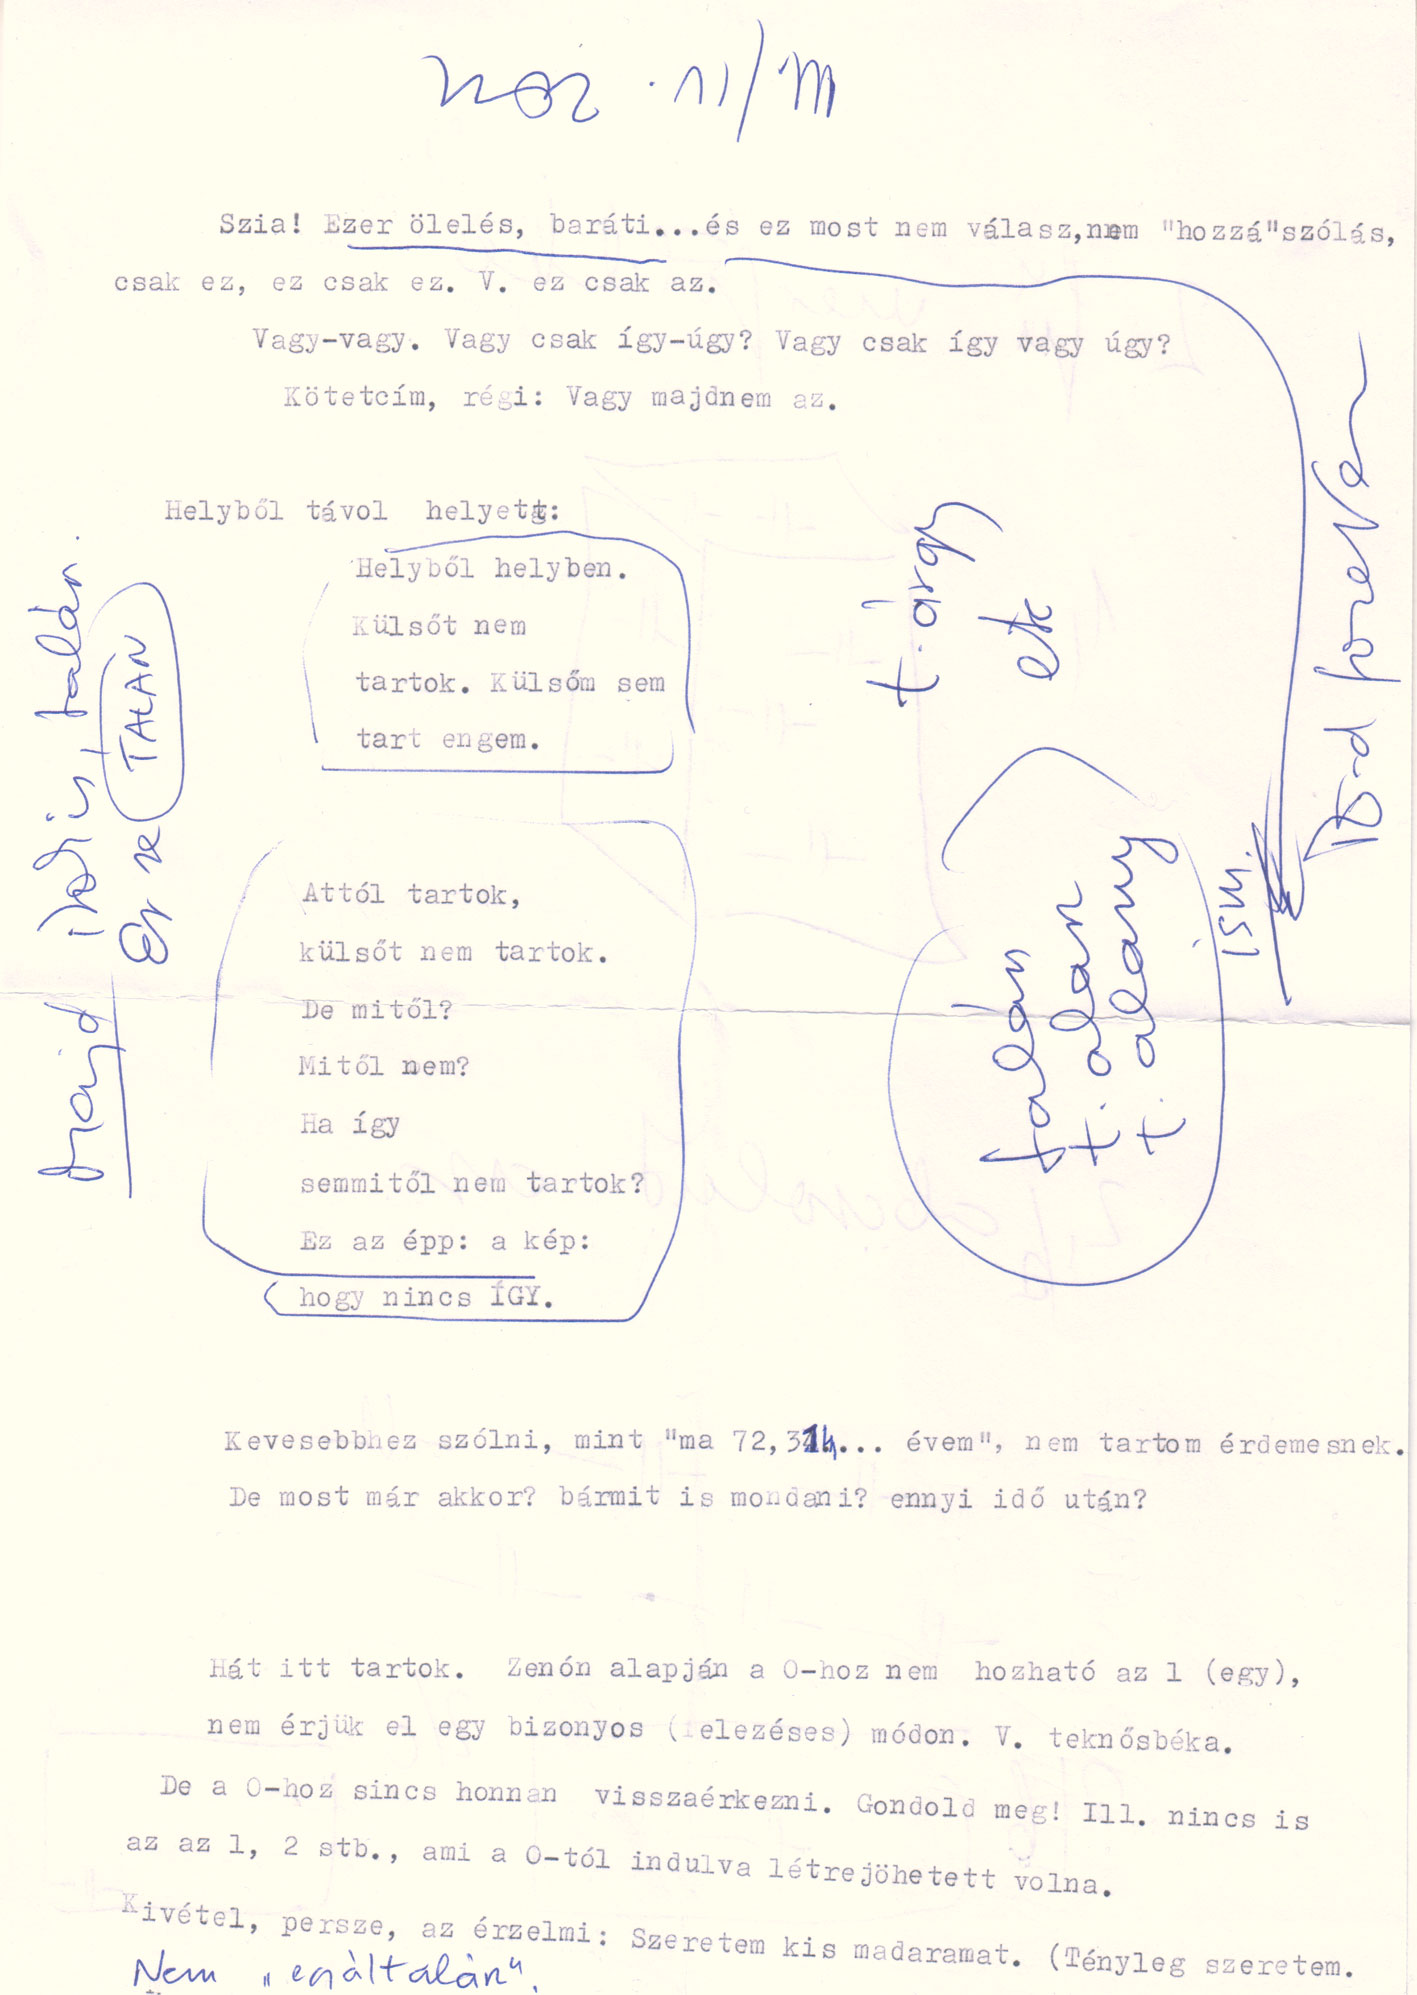 Szia! Ezer ölelés, baráti...és ez most nem válasz,nem "hozzá"szólás,
csak ez, ez csak ez. V. ez csak az.
Vagy-vagy. Vagy csak így-úgy? Vagy csak így vagy úgy?
Kötetcím, régi: Vagy majdnem az.
Helyből távol helyett:
Helyből helyben.
Külsőt nem
tartok. Külsőm sem
tart engem.
t. árgy
ek
majd is, talán.
Ez se TALÁN
Attól tartok,
külsőt nem tartok.
De mitől?
Mitől nem?
Ha így
semmitől nem tartok?
Ez az épp: a kép:
hogy nincs ÍGY.
talán
t. alan
t. alany
ism.
Kevesebbhez szólni, mint "ma 72, ... évem", nem tartom érdemesnek.
De most már akkor? bármit is mondani? ennyi idő után?
Hát itt tartok. Zenón alapján a 0-hoz nem hozható az 1 (egy),
nem érjük el egy bizonyos (felezéses) módon. V. teknősbéka.
De a 0-hoz sincs honnan visszaérkezni. Gondold meg! Ill. nincs is
az az 1, 2 stb., ami a 0-tól indulva létrejöhetett volna.
Kivétel, persze, az érzelmi: Szeretem kis madaramat. (Tényleg szeretem.
Nem „egyáltalán".